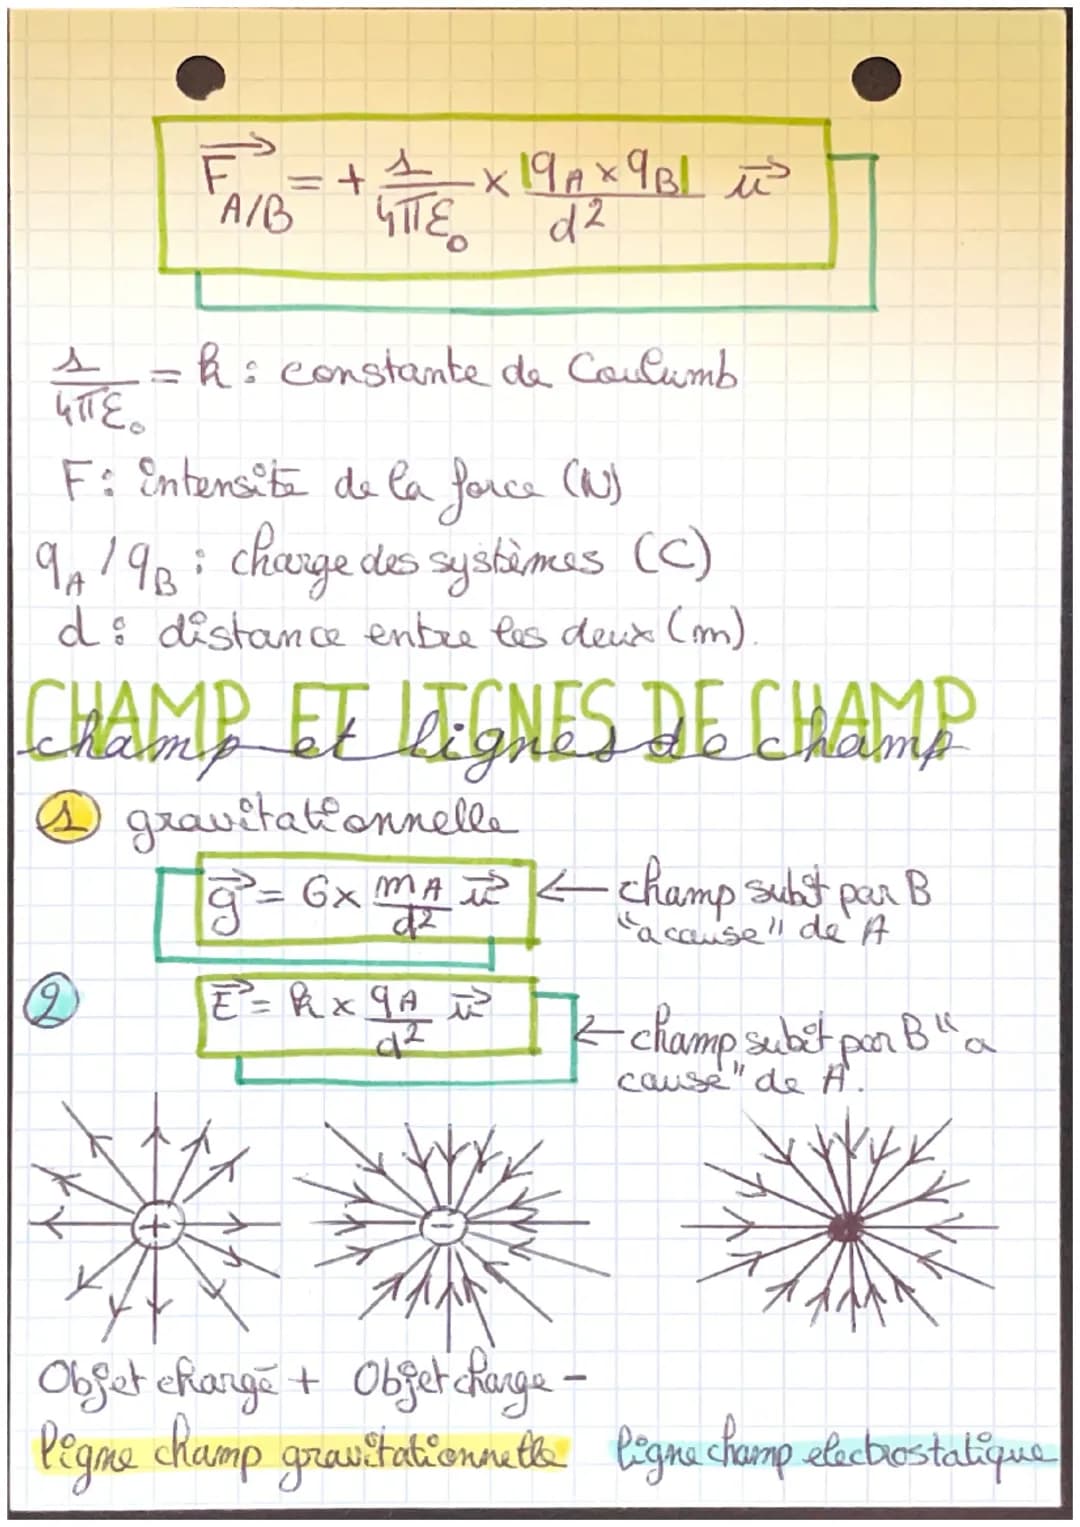 F⃗ A/B = + 1/4πε₀ × |qA × qB|/d² u⃗
1/4πε₀ = k : constante de Coulumb
F : intensité de la force (N)
qA / qB : charge des systèmes (C)
d : distance entre les deux (m).
CHAMP ET LIGNES DE CHAMP
champ et lignes de champ
1 gravitationnelle
g⃗ = G × mA/d² u⃗ ← champ subit par B
"a cause" de A
2 E⃗ = k × qA/d² u⃗ ← champ subit par B "a
cause" de A.
+ −
Objet chargé + Objet charge -
ligne champ gravitationnelle ligne champ electrostatique